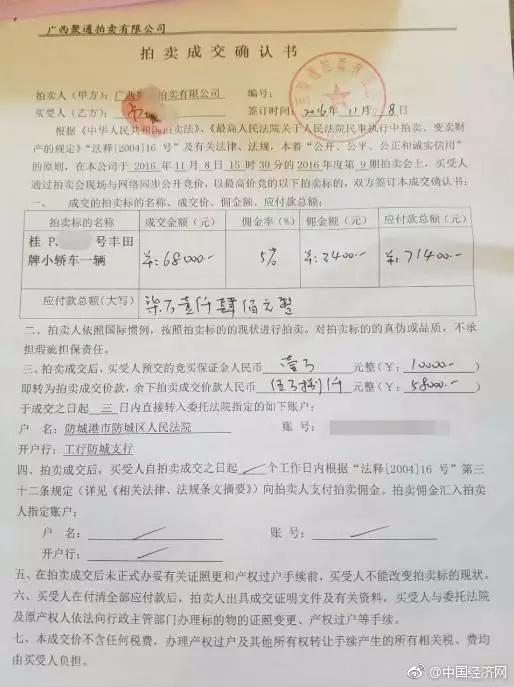 广西聚通拍卖有限公司
拍卖成交确认书
拍卖人（甲方）：广西 拍卖有限公司 编号：
买受人（乙方）： 签订时间：2016年11月8日
根据《中华人民共和国拍卖法》、《最高人民法院关于人民法院民事执行中拍卖、变卖财
产的规定》“法释[2004]16号”及有关法律、法规，本着“公开、公平、公正和诚实信用”
的原则，在本公司于2016年11月8日15时30分的2016年度第9期拍卖会上，买受人
通过拍卖会现场与网络同步公开竞价，以最高价竞的以下拍卖标的，双方签订本成交确认书：
一、 成交的拍卖标的名称、成交价、佣金额、应付款总额：
拍卖标的名称 成交金额（元） 佣金率（%） 佣金额（元） 应付款总额（元）
桂P. 号丰田
牌小轿车一辆 ¥:68000.- 5% ¥:3400.- ¥:71400.-
应付款总额（大写） 柒万壹仟肆佰元整
二、拍卖人依照国际惯例，按照拍卖标的的现状进行拍卖，对拍卖标的的真伪或品质，不承
担瑕疵担保责任。
三、拍卖成交后，买受人预交的竞买保证金人民币 壹万 元整（¥：10000.-）
即转为拍卖成交价款，余下拍卖成交价款人民币 伍万捌仟 元整（¥：58000.-）
于成交之日起 三 日内直接转入委托法院指定的如下账户：
户 名：防城港市防城区人民法院 账 号：
开户行：工行防城支行
四、拍卖成交后，买受人自拍卖成交之日起 / 个工作日内根据“法释[2004]16号”第三
十二条规定（详见《相关法律、法规条文摘要》）向拍卖人支付拍卖佣金。拍卖佣金汇入拍卖
人指定账户：
户 名： / 账 号： /
开户行： /
五、在拍卖成交后未正式办妥有关证照更和产权过户手续前，买受人不能改变拍卖标的现状。
六、买受人在付清全部应付款后，拍卖人出具成交证明文件及有关资料，买受人与委托法院
及原产权人依法向行政主管部门办理标的物的证照变更、产权过户等手续。
七、本成交价不含任何税费，办理产权过户及其他所有权转让手续产生的所有相关税、费均
由买受人负担。
@中国经济网